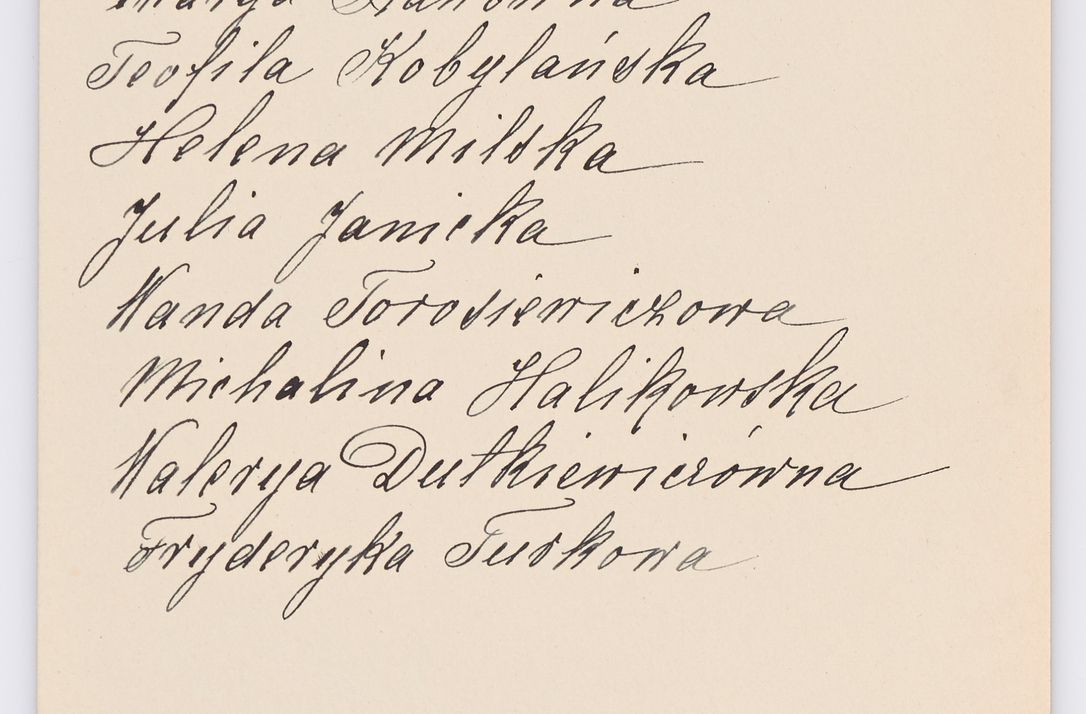 Teofila Kobylańska
Helena Milska
Julia Janicka
Wanda Torosiewiczowa
Michalina Halikowska
Walerya Dutkiewiczówna
Fryderyka Turkowa